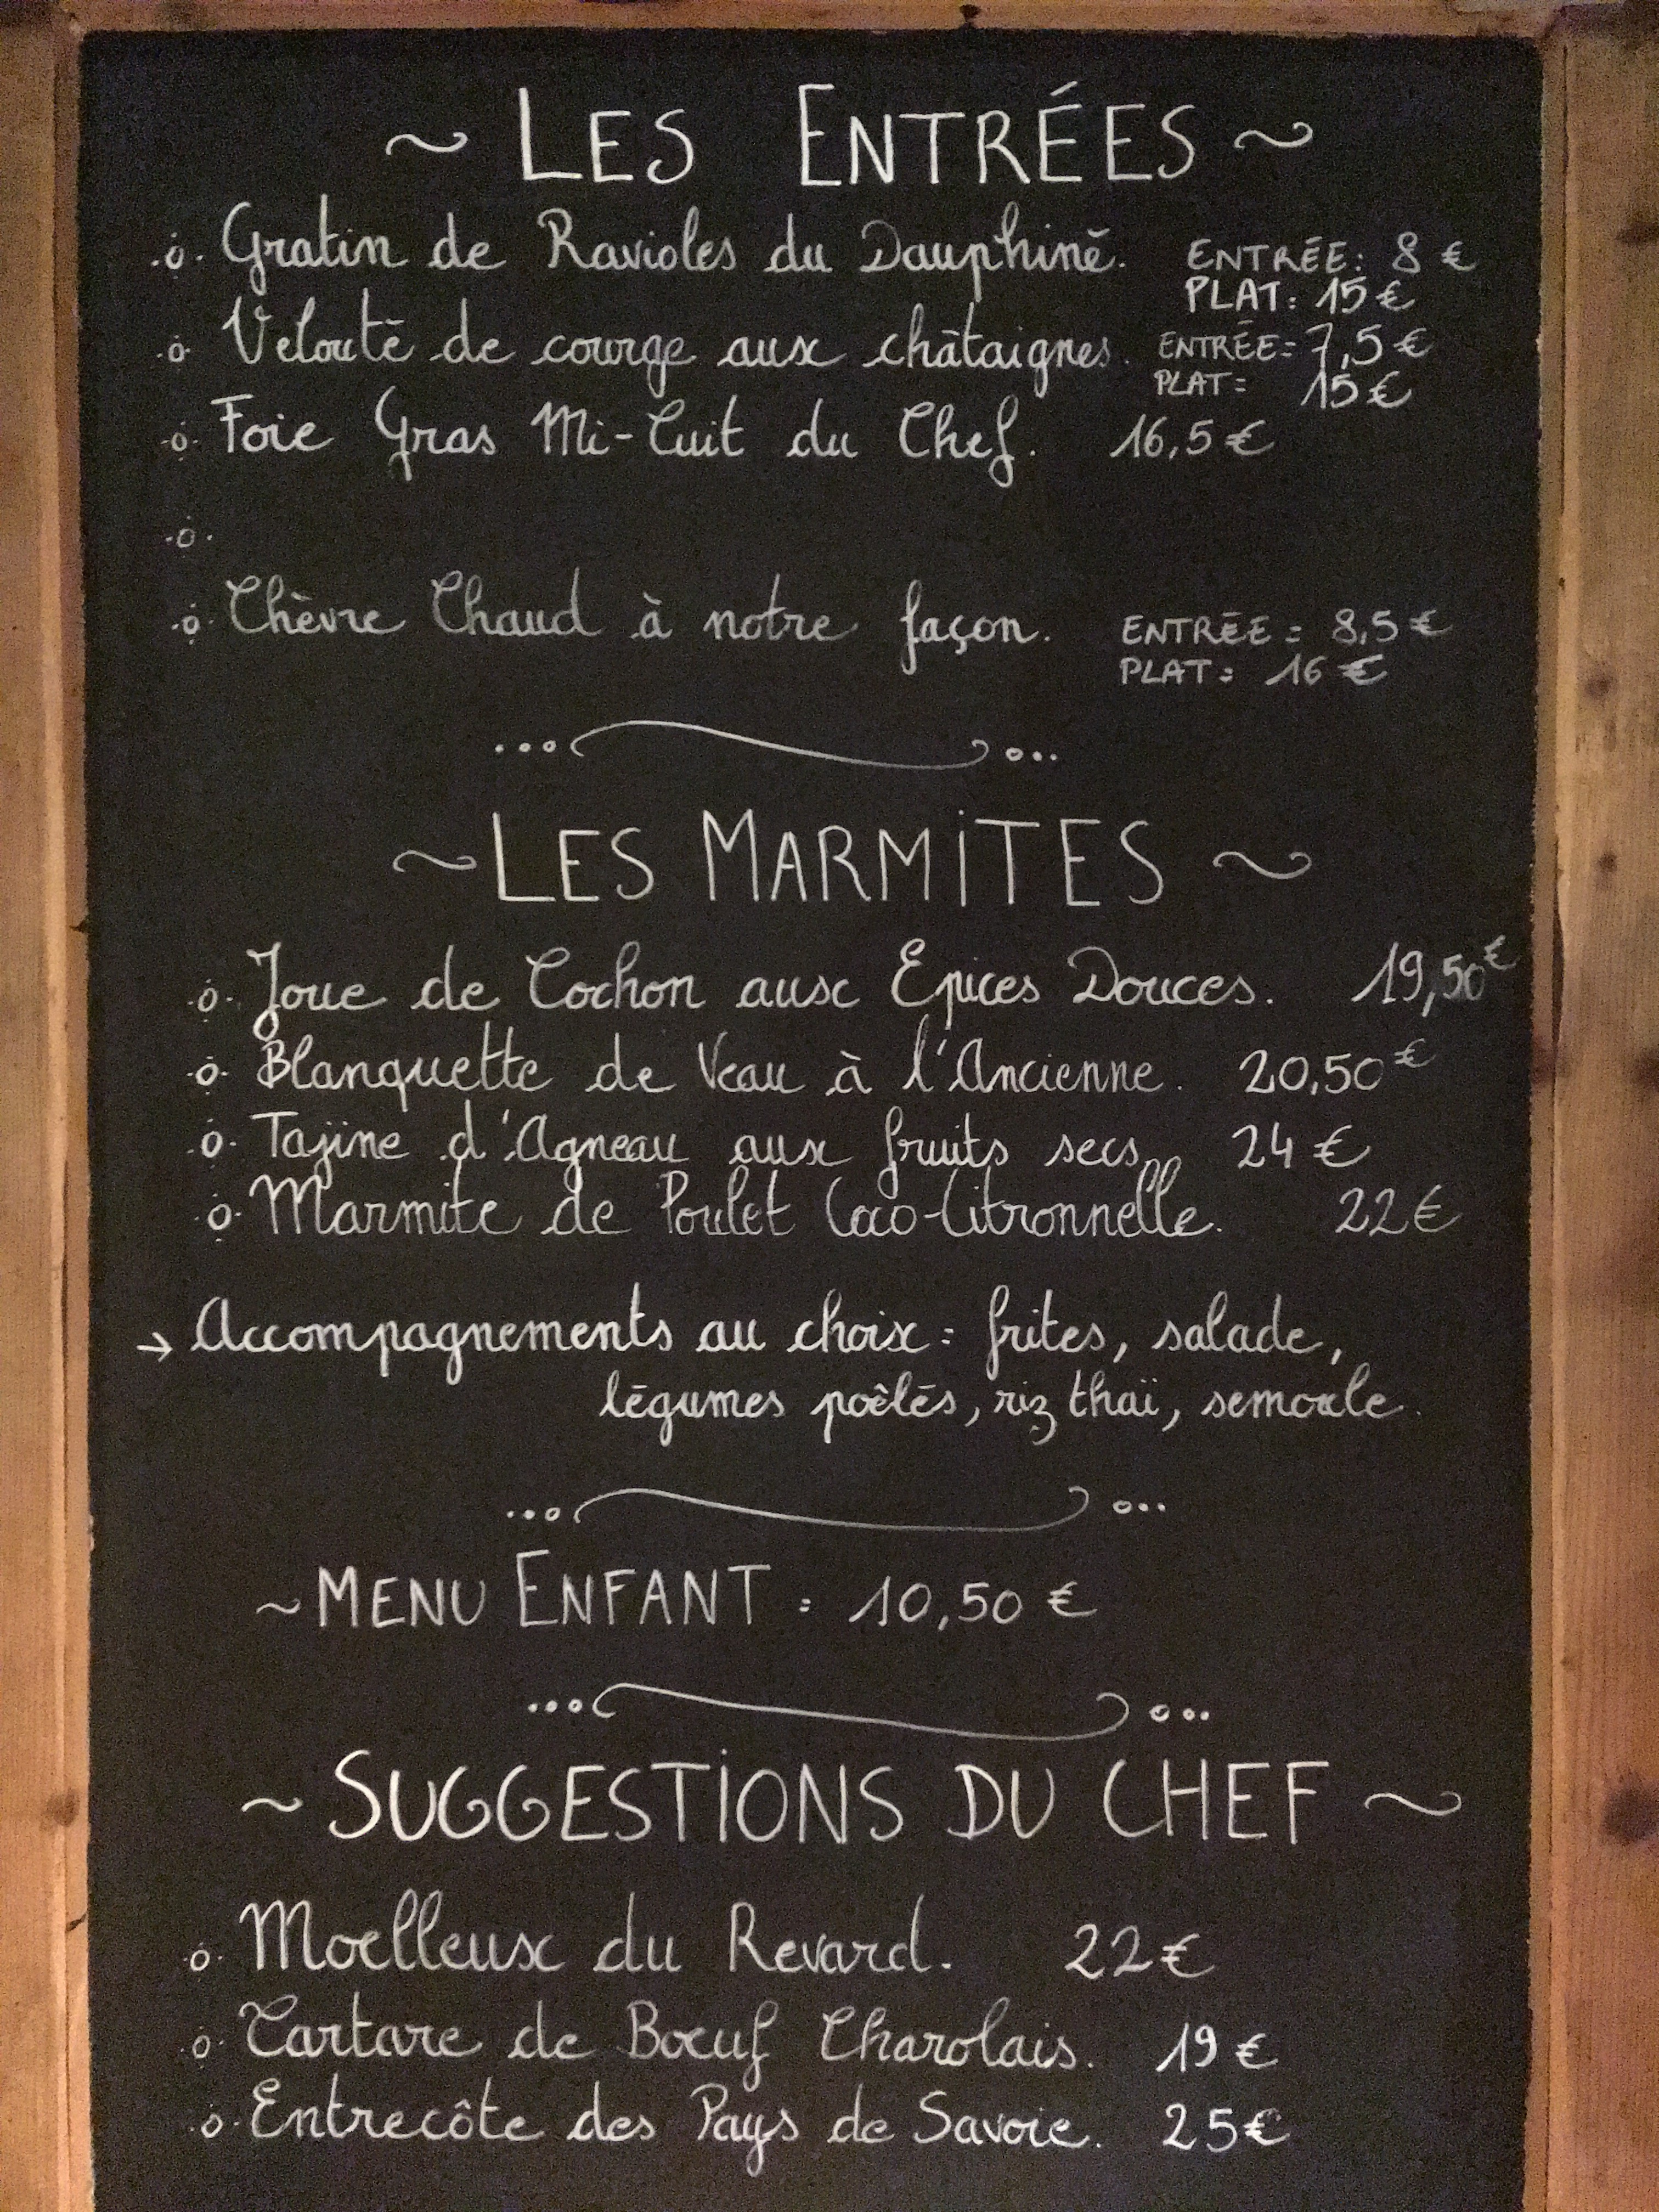 ~ LES ENTRÉES ~
Gratin de Ravioles du Dauphiné. ENTRÉE: 8 €
PLAT: 15 €
Velouté de courge aux châtaignes. ENTRÉE: 7,5 €
PLAT: 15 €
Foie Gras Mi-Cuit du Chef. 16,5 €
Chèvre Chaud à notre façon. ENTRÉE: 8,5 €
PLAT: 16 €
~ LES MARMITES ~
Joue de Cochon aux Epices Douces. 19,50 €
Blanquette de Veau à l'Ancienne. 20,50 €
Tajine d'Agneau aux fruits secs 24 €
Marmite de Poulet Coco-Citronnelle. 22 €
→ Accompagnements au choix: frites, salade,
légumes poêlés, riz thaï, semoule.
~ MENU ENFANT: 10,50 €
~ SUGGESTIONS DU CHEF ~
Moelleux du Revard. 22 €
Tartare de Bœuf Charolais. 19 €
Entrecôte des Pays de Savoie. 25 €